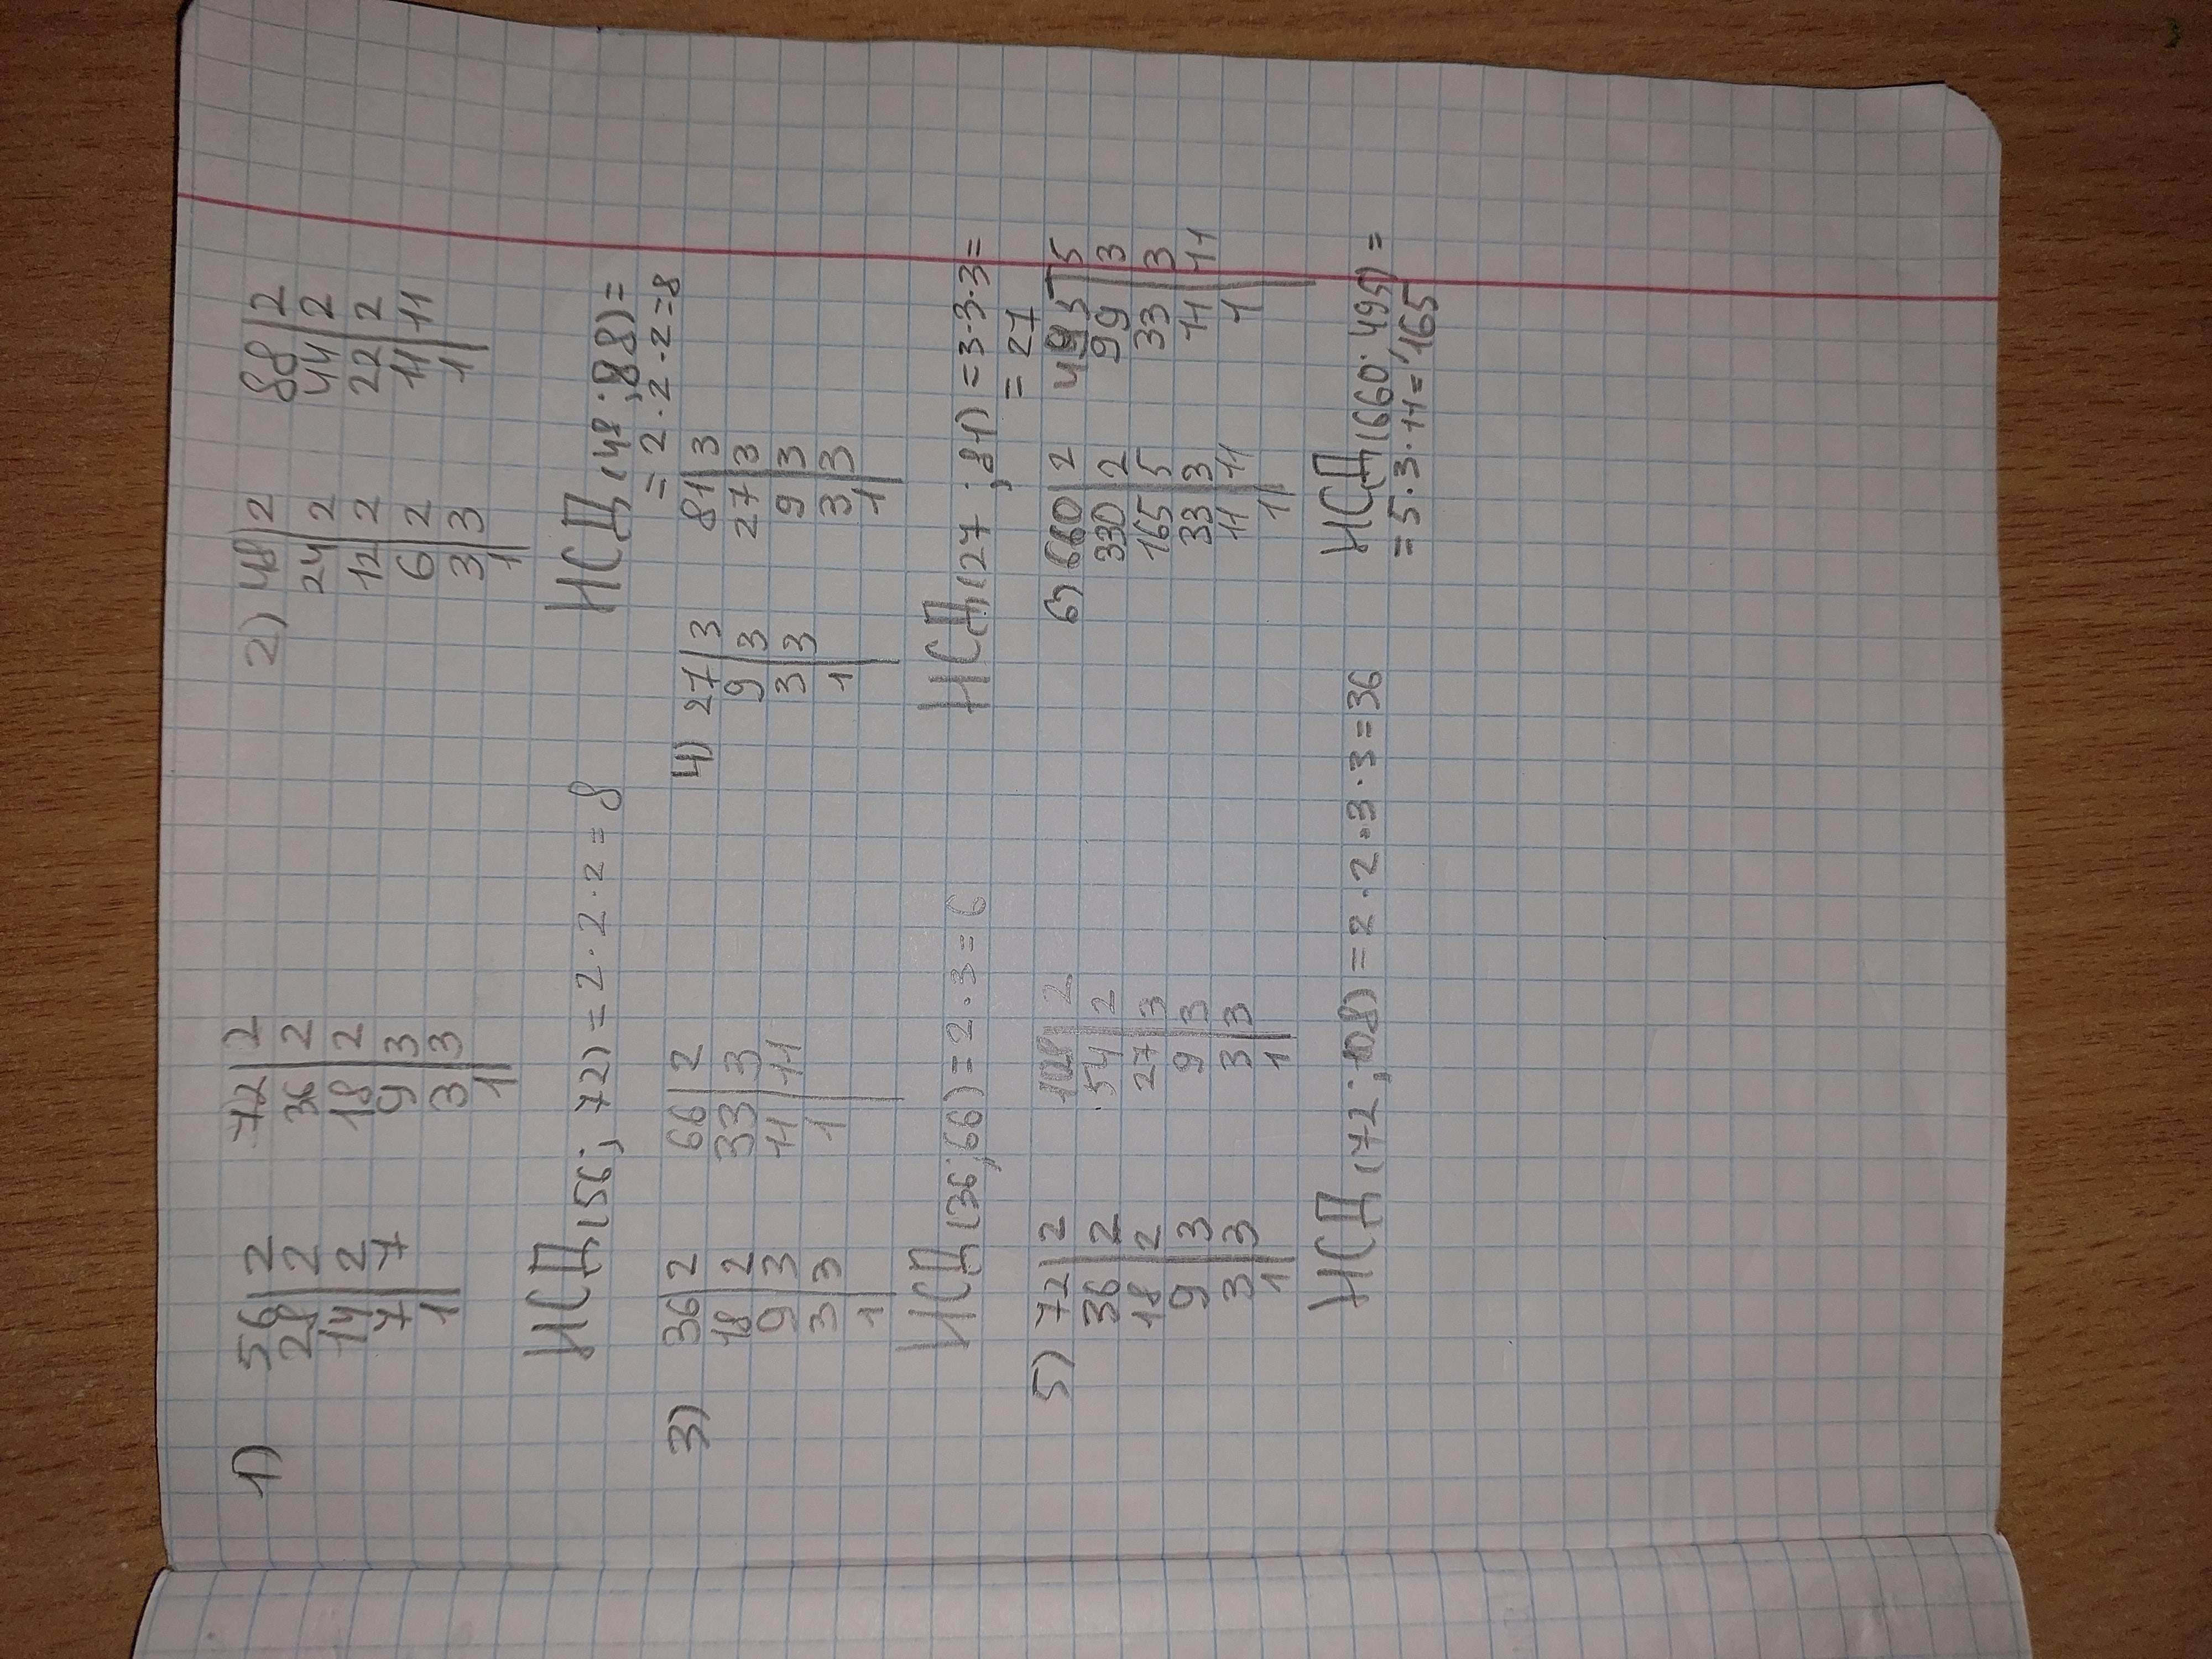 1) 56|2 72|2
28|2 36|2
14|2 18|2
7|7 9|3
1| 3|3
1|
НСД(56; 72) = 2 · 2 · 2 = 8
2) 48|2 88|2
24|2 44|2
12|2 22|2
6|2 11|11
3|3 1|
1|
НСД(48; 88) =
= 2 · 2 · 2 = 8
3) 36|2 66|2
18|2 33|3
9|3 11|11
3|3 1|
1|
НСД(36; 66) = 2 · 3 = 6
4) 27|3 81|3
9|3 27|3
3|3 9|3
1| 3|3
1|
НСД(27; 81) = 3·3·3=
= 27
5) 72|2 108|2
36|2 54|2
18|2 27|3
9|3 9|3
3|3 3|3
1| 1|
НСД(72; 108) = 2 · 2 · 3 · 3 = 36
6) 660|2 495|5
330|2 99|3
165|5 33|3
33|3 11|11
11|11 1|
1|
НСД(660; 495) =
= 5·3·11=165